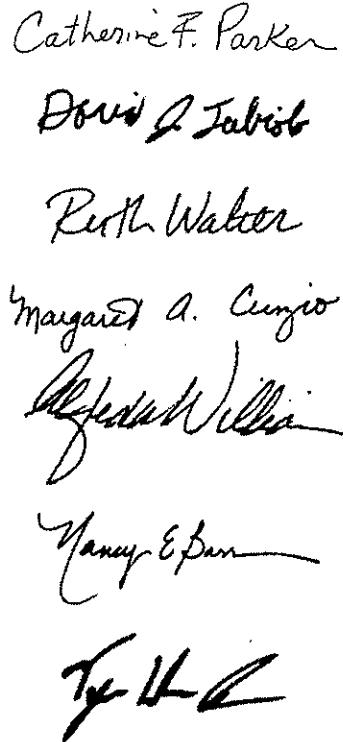 Catherine F. Parker
Doris J
Ruth Walter
Margaret A. Cunzio
Alfreda William
Nancy E Barr